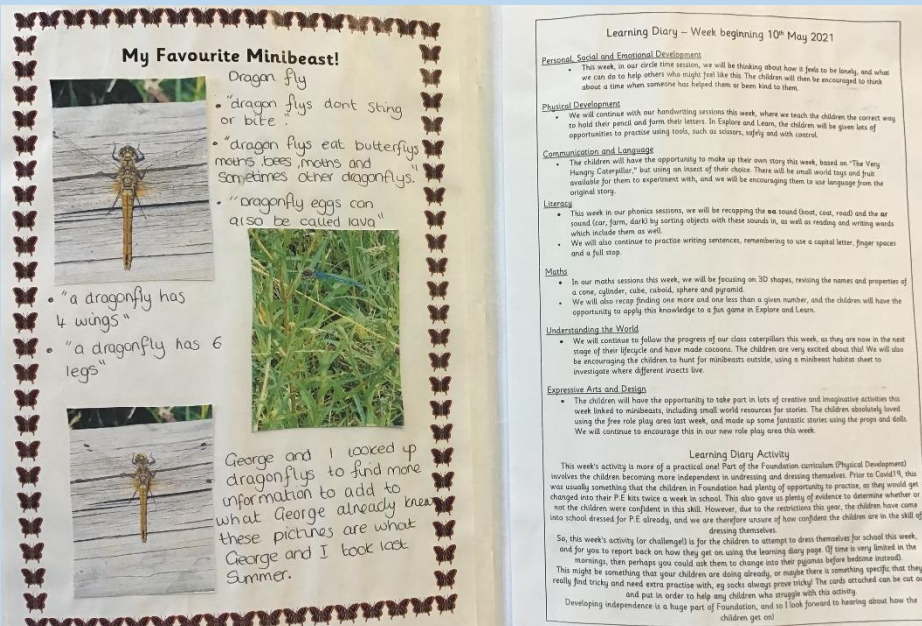 My Favourite Minibeast!
Dragon fly
• "dragon flys dont sting
or bite".
• "dragon flys eat butterflys
moths, bees, moths and
sometimes other dragonflys."
• "Dragonfly eggs can
also be called lava"
• "a dragonfly has
4 wings"
• "a dragonfly has 6
legs"
George and I looked up
dragonflys to find more
information to add to
what George already knew
these pictures are what
George and I took last
Summer.
Learning Diary – Week beginning 10th May 2021
Personal, Social and Emotional Development
• This week, in our circle time session, we will be thinking about how it feels to be lonely, and what
we can do to help others who might feel like this. The children will then be encouraged to think
about a time when someone has helped them or been kind to them.
Physical Development
• We will continue with our handwriting sessions this week, where we teach the children the correct way
to hold their pencil and form their letters. In Explore and Learn, the children will be given lots of
opportunities to practise using tools, such as scissors, safely and with control.
Communication and Language
• The children will have the opportunity to make up their own story this week, based on "The Very
Hungry Caterpillar," but using an insect of their choice. There will be small world toys and fruit
available for them to experiment with, and we will be encouraging them to use language from the
original story.
Literacy
• This week in our phonics sessions, we will be recapping the oa sound (boat, coat, road) and the ar
sound (car, farm, dark) by sorting objects with these sounds in, as well as reading and writing words
which include them as well.
• We will also continue to practise writing sentences, remembering to use a capital letter, finger spaces
and a full stop.
Maths
• In our maths sessions this week, we will be focusing on 3D shapes, revising the names and properties of
a cone, cylinder, cube, cuboid, sphere and pyramid.
• We will also recap finding one more and one less than a given number, and the children will have the
opportunity to apply this knowledge to a fun game in Explore and Learn.
Understanding the World
• We will continue to follow the progress of our class caterpillars this week, as they are now in the next
stage of their lifecycle and have made cocoons. The children are very excited about this! We will also
be encouraging the children to hunt for minibeasts outside, using a minibeast habitat sheet to
investigate where different insects live.
Expressive Arts and Design
• The children will have the opportunity to take part in lots of creative and imaginative activities this
week linked to minibeasts, including small world resources for stories. The children absolutely loved
using the free role play area last week, and made up some fantastic stories using the props and dolls.
We will continue to encourage this in our new role play area this week.
Learning Diary Activity
This week's activity is more of a practical one! Part of the Foundation curriculum (Physical Development)
involves the children becoming more independent in undressing and dressing themselves. Prior to Covid19, this
was usually something that the children in Foundation had plenty of opportunity to practise, as they would get
changed into their P.E kits twice a week in school. This also gave us plenty of evidence to determine whether or
not the children were confident in this skill. However, due to the restrictions this year, the children have come
into school dressed for P.E already, and we are therefore unsure of how confident the children are in the skill of
dressing themselves.
So, this week's activity (or challenge!) is for the children to attempt to dress themselves for school this week,
and for you to report back on how they get on using the learning diary page. (If time is very limited in the
mornings, then perhaps you could ask them to change into their pyjamas before bedtime instead).
This might be something that your children are doing already, or maybe there is something specific that they
really find tricky and need extra practise with, eg socks always prove tricky! The cards attached can be cut out
and put in order to help any children who struggle with this activity.
Developing independence is a huge part of Foundation, and so I look forward to hearing about how the
children get on!